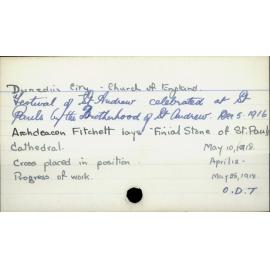 Dunedin City - Church of England.
Festival of St Andrew celebrated at St
Pauls by the Brotherhood of St Andrew. Dec 5. 1916
Archdeacon Fitchett lays Finial Stone of St. Pauls
Cathedral. May 10, 1918.
Cross placed in position. April 12 -
Progress of work. May 25, 1918.
O.D.T